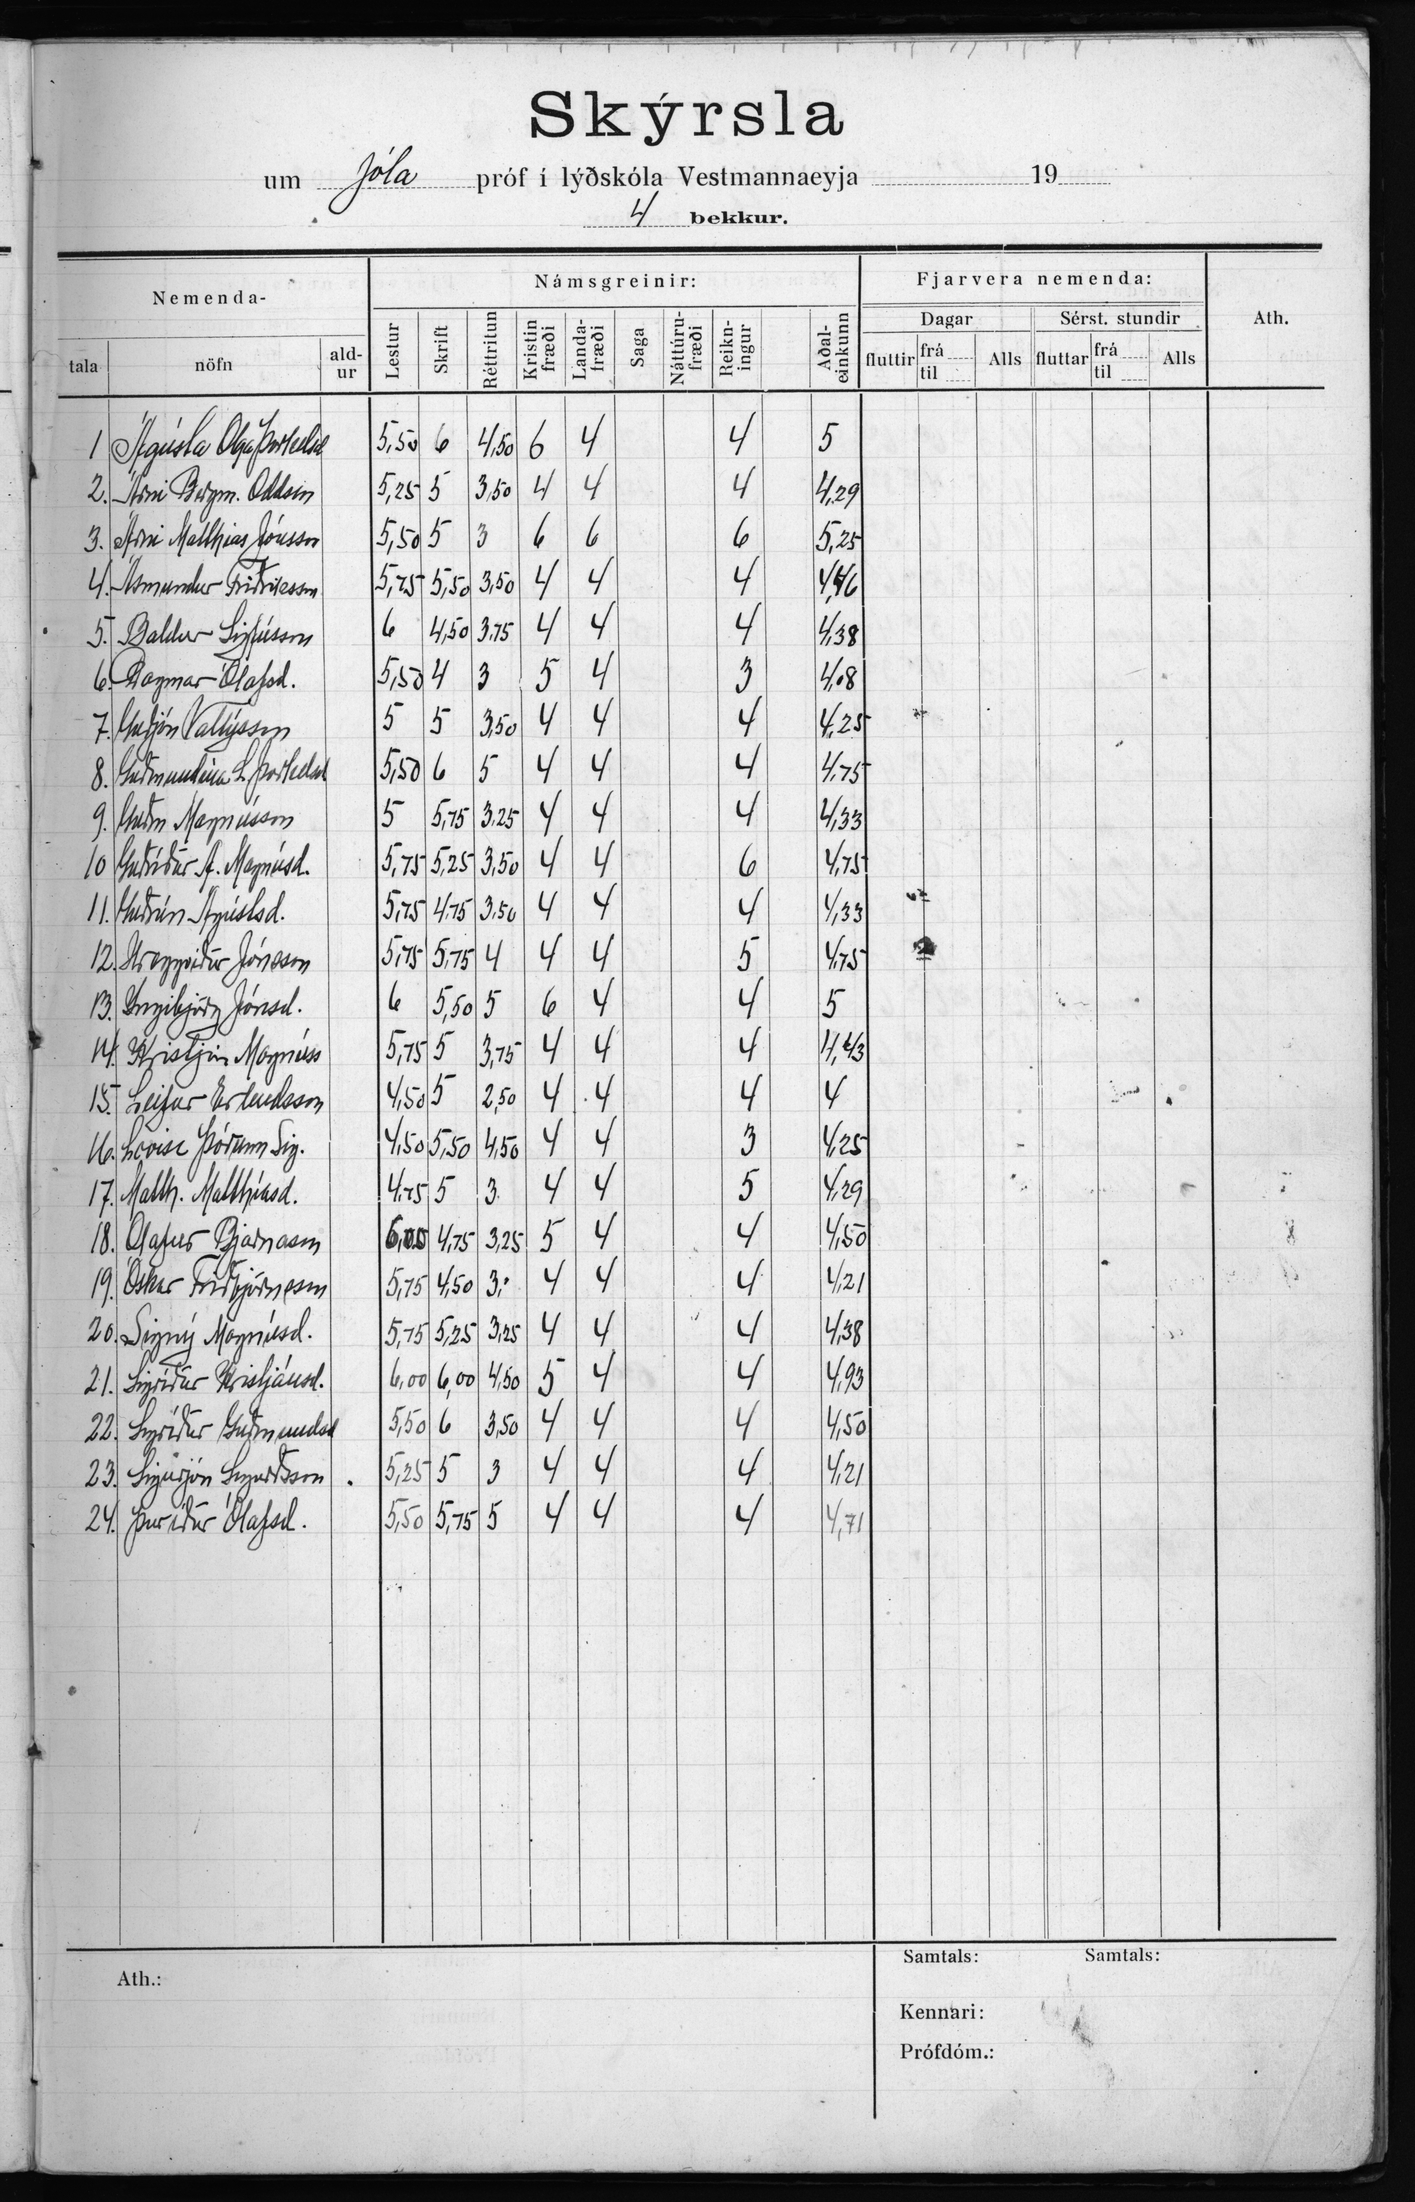 Skýrsla
um Jóla próf í lýðskóla Vestmannaeyja 19
4 bekkur.
Nemenda- Námsgreinir: Fjarvera nemenda: Ath.
Dagar Sérst. stundir
tala nöfn ald-ur Lestur Skrift Réttritun Kristin fræði Landa-fræði Saga Náttúru-fræði Reikn-ingur Aðal-einkunn fluttir frá til Alls fluttar frá til Alls
1 Ágústa Olga Þorkelsd 5,50 6 4,50 6 4 4 5
2. Árni Bergm. Oddsson 5,25 5 3,50 4 4 4 4,29
3. Árni Matthias Jónsson 5,50 5 3 6 6 6 5,25
4. Ásmundur Friðriksson 5,75 5,50 3,50 4 4 4 4,46
5. Baldur Sigfússon 6 4,50 3,75 4 4 4 4,38
6. Dagmar Ólafsd. 5,50 4 3 5 4 3 4,08
7. Guðjón Valtýsson 5 5 3,50 4 4 4 4,25
8. Guðmundína L. Þorkelsd 5,50 6 5 4 4 4 4,75
9. Guðm Magnússon 5 5,75 3,25 4 4 4 4,33
10 Guðríður A. Magnúsd. 5,75 5,25 3,50 4 4 6 4,75
11. Guðrún Ágústsd. 5,75 4,75 3,50 4 4 4 4,33
12. Hreggviður Jónsson 5,75 5,75 4 4 4 5 4,75
13. Ingibjörg Jónsd. 6 5,50 5 6 4 4 5
14. Kristján Magnúss 5,75 5 3,75 4 4 4 4,43
15. Leifur Erlendsson 4,50 5 2,50 4 4 4 4
16. Lovise Þórunn Sig. 4,50 5,50 4,50 4 4 3 4,25
17. Matth. Matthíasd. 4,75 5 3 4 4 5 4,29
18. Ólafur Bjarnason 6,00 4,75 3,25 5 4 4 4,50
19. Óskar Friðbjörnsson 5,75 4,50 3. 4 4 4 4,21
20. Signý Magnúsd. 5,75 5,25 3,25 4 4 4 4,38
21. Sigríður Kristjánsd. 6,00 6,00 4,50 5 4 4 4,93
22. Sigríður Guðmundsd 5,50 6 3,50 4 4 4 4,50
23. Sigurjón Sigurðsson 5,25 5 3 4 4 4 4,21
24. Þuríður Ólafsd. 5,50 5,75 5 4 4 4 4,71
Samtals: Samtals:
Ath.:
Kennari:
Prófdóm.: